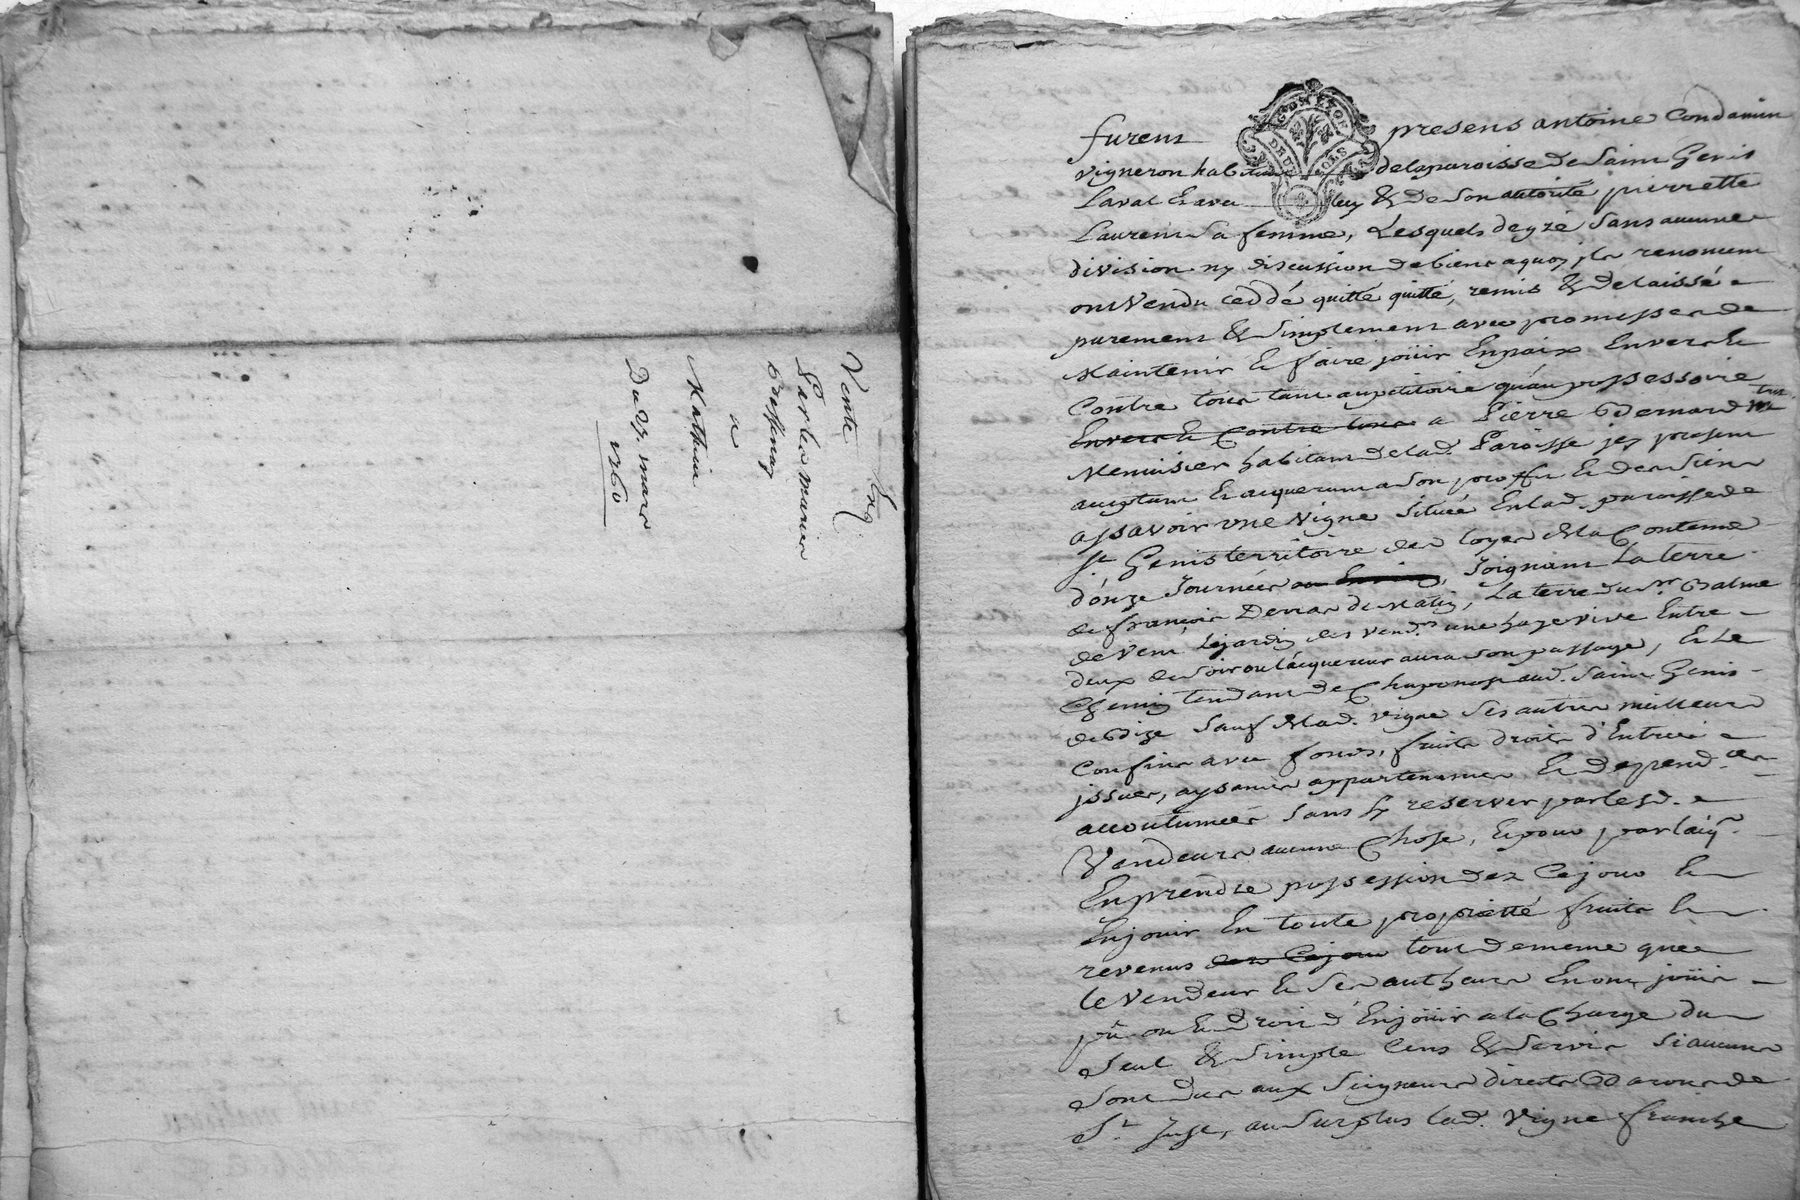 Vente
Par les mariés
a
Mathieu
Du 27. mars
1760
GON LYON
DEUX SOLS
furent presens antoine Condamin
vigneron habitant de la paroisse de Saint Genis
Laval Et avec luy & de son autorité pierrette
Laurent Sa femme, Lesquels de gré Sans aucune
division ny discussion de biens a quoy jls renoncent
ont Vendu ceddé quitté quitté, remis & delaissé
purement & Simplement avec promesses de
Maintenir & faire joüir En paix Envers &
Contre tous tant au petitoire qu'au possessoire
Envers & Contre tous a Pierre Bernard
Menuisier habitant de lad. Paroisse jcy present
acceptant Et acquerant a Son proffit Et des Siens
assavoir une Vigne Située En lad. paroisse de
St Genis territoire des loyes de la Contenue
d'onze Journées Joignant La terre
de françois Dervas de Matin, La terre du Sr. Balme
de Vent Le jardin des Vendrs une haye vive Entre
deux de Soir ou l'acquereur aura Son passage, Et Le
Chemin tendant de Chaponost aud. Saint Genis
de Bize Sauf de lad. Vigne Ses autres meilleurs
Confins avec fonds, fruits droits d'Entrées
jssues, aysances appartenances Et depend.ces
accoutumées Sans Se reserver par lesd.
Vendeurs aucune Chose, Et pour par l'acqr.
En prendre possession dez Ce jour Et
En jouir En toute proprietté fruits Et
revenus dez Ce jour tout de meme que
le Vendeur & Ses autheurs En ont joüir
pû ou Eu droit d'En joüir a la Charge du
Seul & Simple Cens & Servis Si aucuns
Sont dus aux Seigneurs directs Barons de
St Just, au Surplus lad. Vigne franche